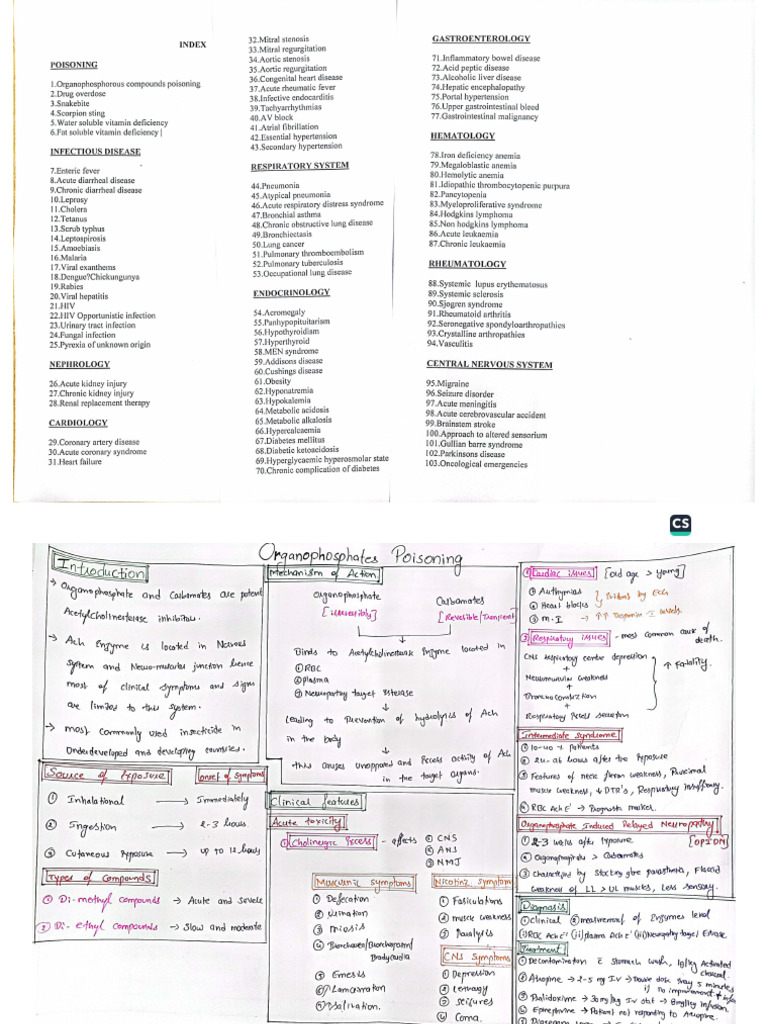 INDEX
POISONING
1.Organophosphorous compounds poisoning
2.Drug overdose
3.Snakebite
4.Scorpion sting
5.Water soluble vitamin deficiency
6.Fat soluble vitamin deficiency
INFECTIOUS DISEASE
7.Enteric fever
8.Acute diarrheal disease
9.Chronic diarrheal disease
10.Leprosy
11.Cholera
12.Tetanus
13.Scrub typhus
14.Leptospirosis
15.Amoebiasis
16.Malaria
17.Viral exanthems
18.Dengue?Chickungunya
19.Rabies
20.Viral hepatitis
21.HIV
22.HIV Opportunistic infection
23.Urinary tract infection
24.Fungal infection
25.Pyrexia of unknown origin
NEPHROLOGY
26.Acute kidney injury
27.Chronic kidney injury
28.Renal replacement therapy
CARDIOLOGY
29.Coronary artery disease
30.Acute coronary syndrome
31.Heart failure
32.Mitral stenosis
33.Mitral regurgitation
34.Aortic stenosis
35.Aortic regurgitation
36.Congenital heart disease
37.Acute rheumatic fever
38.Infective endocarditis
39.Tachyarrhythmias
40.AV block
41.Atrial fibrillation
42.Essential hypertension
43.Secondary hypertension
RESPIRATORY SYSTEM
44.Pneumonia
45.Atypical pneumonia
46.Acute respiratory distress syndrome
47.Bronchial asthma
48.Chronic obstructive lung disease
49.Bronchiectasis
50.Lung cancer
51.Pulmonary thromboembolism
52.Pulmonary tuberculosis
53.Occupational lung disease
ENDOCRINOLOGY
54.Acromegaly
55.Panhypopituitarism
56.Hypothyroidism
57.Hyperthyroid
58.MEN syndrome
59.Addisons disease
60.Cushings disease
61.Obesity
62.Hyponatremia
63.Hypokalemia
64.Metabolic acidosis
65.Metabolic alkalosis
66.Hypercalcaemia
67.Diabetes mellitus
68.Diabetic ketoacidosis
69.Hyperglycaemic hyperosmolar state
70.Chronic complication of diabetes
GASTROENTEROLOGY
71.Inflammatory bowel disease
72.Acid peptic disease
73.Alcoholic liver disease
74.Hepatic encephalopathy
75.Portal hypertension
76.Upper gastrointestinal bleed
77.Gastrointestinal malignancy
HEMATOLOGY
78.Iron deficiency anemia
79.Megaloblastic anemia
80.Hemolytic anemia
81.Idiopathic thrombocytopenic purpura
82.Pancytopenia
83.Myeloproliferative syndrome
84.Hodgkins lymphoma
85.Non hodgkins lymphoma
86.Acute leukaemia
87.Chronic leukaemia
RHEUMATOLOGY
88.Systemic lupus erythematosus
89.Systemic sclerosis
90.Sjogren syndrome
91.Rheumatoid arthritis
92.Seronegative spondyloarthropathies
93.Crystalline arthropathies
94.Vasculitis
CENTRAL NERVOUS SYSTEM
95.Migraine
96.Seizure disorder
97.Acute meningitis
98.Acute cerebrovascular accident
99.Brainstem stroke
100.Approach to altered sensorium
101.Gullian barre syndrome
102.Parkinsons disease
103.Oncological emergencies
CS
Organophosphates Poisoning
Introduction
→ Organophosphate and Carbamates are potent
Acetylcholinesterase inhibitors.
→ Ach Enzyme is located in Nervous
System and Neuro-muscular junction hence
most of clinical symptoms and signs
are limited to this system.
→ most commonly used insecticide in
Underdeveloped and developing countries.
Source of Exposure Onset of symptoms
① Inhalational → Immediately
② Ingestion → 2-3 hours
③ Cutaneous Exposure → up to 12 hours
Types of Compounds
① Di-methyl compounds → Acute and severe
② Di-ethyl compounds → Slow and moderate
Mechanism of Action
Organophosphate Carbamates
[Irreversibly] [Reversible/Transient]
Binds to Acetylcholinesterase Enzyme located in
① RBC
② plasma
③ Neuropathy target Esterase
Leading to Prevention of hydrolysis of Ach
in the body
This causes Unopposed and Excess activity of Ach
in the target organs.
Clinical features
Acute toxicity
① Cholinergic Excess - affects ① CNS
② ANS
③ NMJ
Muscarinic symptoms
① Defecation
② Urination
③ miosis
④ Bronchorrhea/Bronchospasm/
Bradycardia
⑤ Emesis
⑥ ↑Lacrimation
⑦ ↑Salivation.
Nicotinic symptoms
① Fasiculations
② muscle weakness
③ Paralysis
CNS symptoms
① Depression
② Lethargy
③ Seizures
④ Coma.
② Cardiac issues [old age > young]
① Arrthymias
② Heart blocks
③ M.I → ↑↑ Troponin-I levels.
③ Respiratory issues - most common cause of
death.
CNS respiratory centre depression
+
Neuromuscular weakness
+
Bronchoconstriction
+
Respiratory Excess secretion
↑ Fatality.
Intermediate Syndrome
① 10-40% Patients
② 24-96 hours after the Exposure
③ Features of neck flexion weakness, Proximal
muscle weakness, ↓ DTR's, Respiratory insufficiency.
④ RBC AchE' → Prognostic marker.
Organophosphate Induced Delayed Neuropathy
[OPIDN]
① 2-3 weeks after Exposure
② Organophosphates > Carbamates
③ Characterised by Stocking glove parasthesia, Flaccid
weakness of LL > UL muscles, Less sensory.
Diagnosis
① Clinical ② measurement of Enzymes level
(i) RBC AchE' (ii) plasma AchE' (iii) Neuropathy target Esterase
Treatment
① Decontamination Stomach wash, 1g/kg Activated
charcoal.
② Atropine → 2-5 mg I.V → Double dose Every 5 minutes
if no improvement
③ Pralidoxime → 30mg/kg I.V stat → 8mg/kg Infusion
④ Epinephrine → Patient not responding to Atropine.